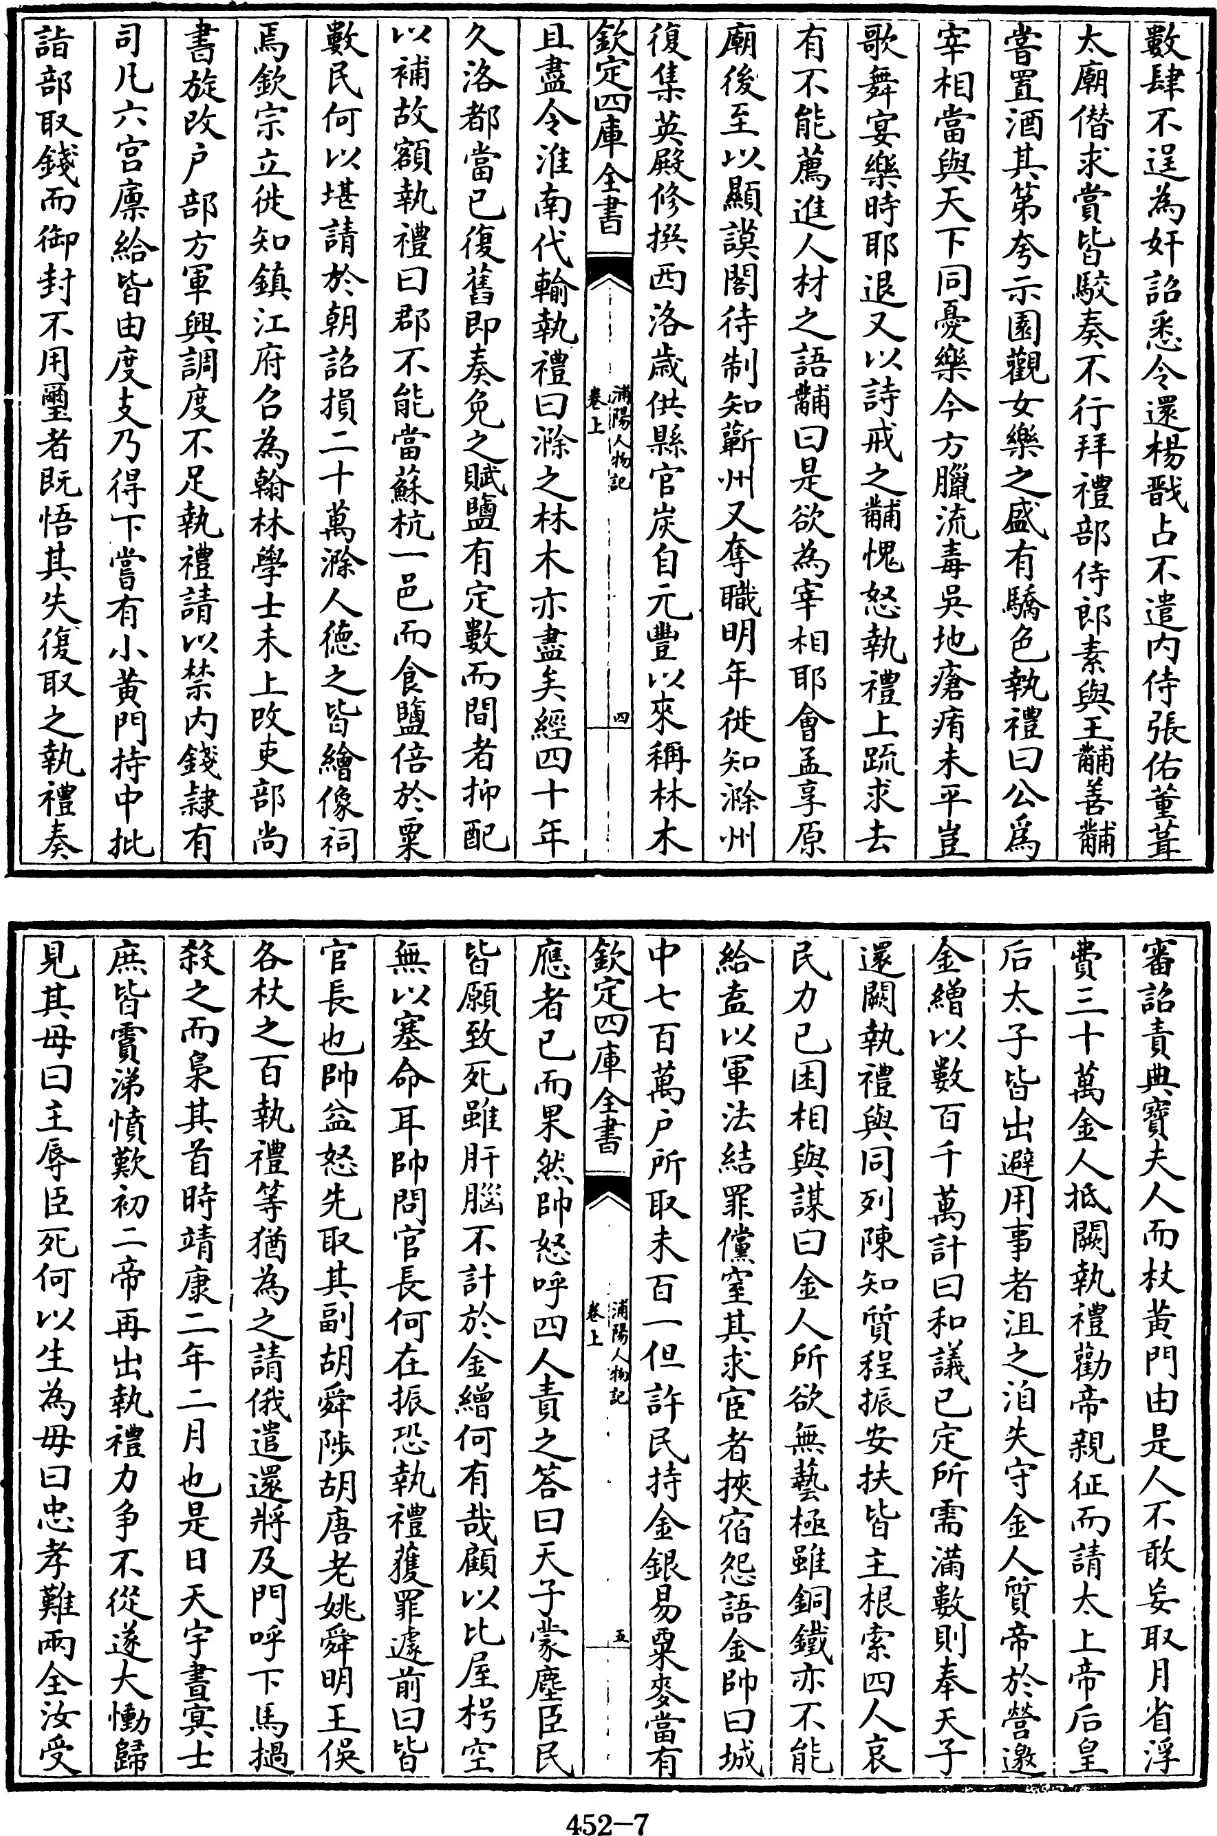 數肆不逞為奸詔悉令還楊戩占不遣内侍張佑董葺
太廟僭求賞皆駮奏不行拜禮部侍郎素與王黼善黼
嘗置酒其第夸示園觀女樂之盛有驕色執禮曰公爲
宰相當與天下同憂樂今方臘流毒吳地瘡痏未平豈
歌舞宴樂時耶退又以詩戒之黼愧怒執禮上疏求去
有不能薦進人材之語黼曰是欲為宰相耶會孟享原
廟後至以顯謨閣待制知蘄州又奪職明年徙知滁州
復集英殿修撰西洛歳供縣官炭自元豐以來稱林木
欽定四庫全書
浦陽人物記
卷上
四
且盡令淮南代輸執禮曰滁之林木亦盡矣經四十年
久洛都當已復舊即奏免之賦鹽有定數而間者抑配
以補故額執禮曰郡不能當蘇杭一邑而食鹽倍於粟
數民何以堪請於朝詔損二十萬滁人德之皆繪像祠
焉欽宗立徙知鎮江府召為翰林學士未上改吏部尚
書旋改户部方軍興調度不足執禮請以禁内錢隷有
司凡六宫廪給皆由度支乃得下嘗有小黄門持中批
詣部取錢而御封不用璽者既悟其失復取之執禮奏
審詔責典寶夫人而杖黄門由是人不敢妄取月省浮
費三十萬金人抵闕執禮勸帝親征而請太上帝后皇
后太子皆出避用事者沮之洎失守金人質帝於營邀
金繒以數百千萬計曰和議已定所需滿數則奉天子
還闕執禮與同列陳知質程振安扶皆主根索四人哀
民力已困相與謀曰金人所欲無藝極雖銅鐵亦不能
給盍以軍法結罪儻窒其求宦者挾宿怨語金帥曰城
中七百萬户所取未百一但許民持金銀易粟麥當有
欽定四庫全書
浦陽人物記
卷上
五
應者已而果然帥怒呼四人責之答曰天子蒙塵臣民
皆願致死雖肝腦不計於金繒何有哉顧以比屋枵空
無以塞命耳帥問官長何在振恐執禮獲罪遽前曰皆
官長也帥益怒先取其副胡舜陟胡唐老姚舜明王俁
各杖之百執禮等猶為之請俄遣還將及門呼下馬撾
殺之而梟其首時靖康二年二月也是日天宇晝冥士
庶皆霣涕憤歎初二帝再出執禮力争不從遂大慟歸
見其母曰主辱臣死何以生為母曰忠孝難兩全汝受
452-7